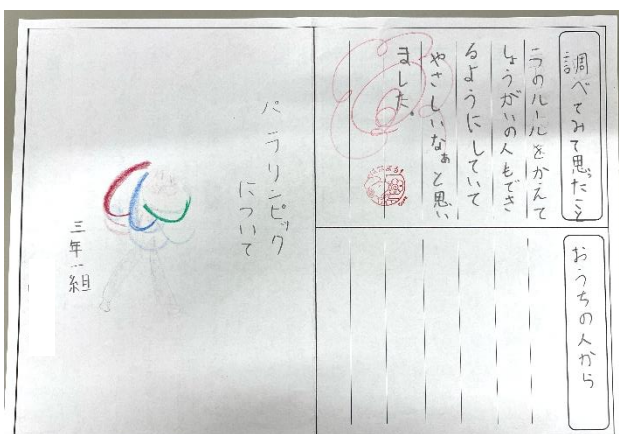 調べてみて思ったこと
ラのルールをかえて
しょうがいの人もでき
るようにしていて
やさしいなぁと思い
ました。
おうちの人から
パラリンピック
について
三年一組